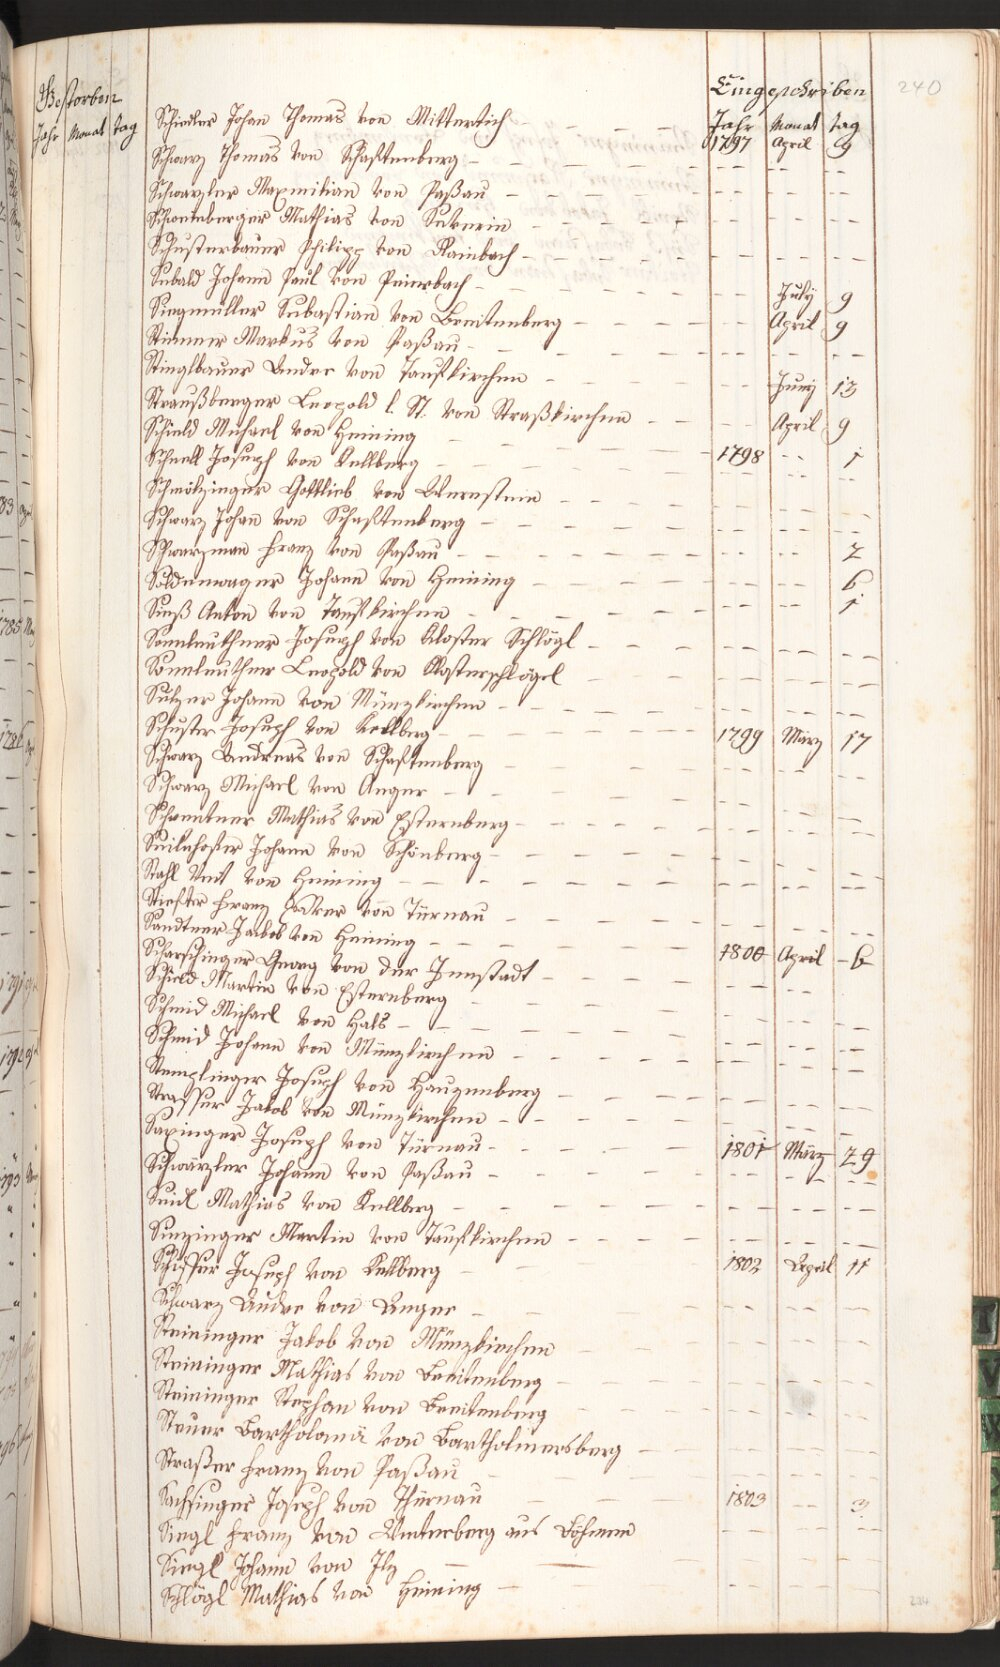 240
Gestorben
Eingeschriben
Jahr Monat tag
Jahr Monat tag
Schiedler Johan Thomas von Mitterteich 1797 April 9
Schwarz Thomas von Schaftenberg
Schwarzler Maxmilian von Paßau
Schwemberger Mathias von
Schusterbauer Philipp von Rainbach
Sebald Johann Paul von July 9
Siegmüller Sebastian von Breitenberg April 9
Stimmer Markus von Paßau
Stieglbauer Andre von Taufkirchen Juny 13
Straußberger Leopold l. St. von Straßkirchen April 9
Schield Michael von Heining 1798 1
Schnell Joseph von Kellberg
Schmölzinger Gottlieb von Wernstein
Schwarz Johan von Schaftenberg
Schwarzman Franz von Paßau 2
Söldenwager Johann von Heining 6
Sueß Anton von Taufkirchen 1
Sonnleuthner Joseph von Kloster Schlögl
Sonnleuthner Leopold von Klosterschlögel
Sulzer Johann von Münzkirchen
Schuster Joseph von Kellberg 1799 März 17
Schwarz Andreas von Schaftenberg
Schwarz Michael von Anger
Schwentner Mathias von Esternberg
Johann von Schönberg
Stahl Veit von Heining
Stiefter Franz Xaver von Türnau
Sandtner Jakob von Heining 1800 April 6
Scharschinger Georg von der Innstadt
Schield Martin von Esternberg
Schmid Michael von Hals
Schmid Johann von Münzkirchen
Stemplinger Joseph von Hauzenberg
Strasser Jakob von Münzkirchen
Saxinger Joseph von Türnau 1801 März 29
Schwärzler Johann von Paßau
Seidl Mathias von Kellberg
Sinzinger Martin von Taufkirchen
Schisser Joseph von Kellberg 1802 April 11
Schwarz Andre von Anger
Steininger Jakob von Münzkirchen
Steininger Mathias von Breitenberg
Steininger Stephan von Breitenberg
Steuer Bartholomä von Bartholmersberg
Straßer Franz von Paßau
Sachsinger Joseph von Thürnau 1803 3
Siegl Franz von Winterberg aus Böhmen
Siegl Johann von Ilz
Schlögl Mathias von Heining
234